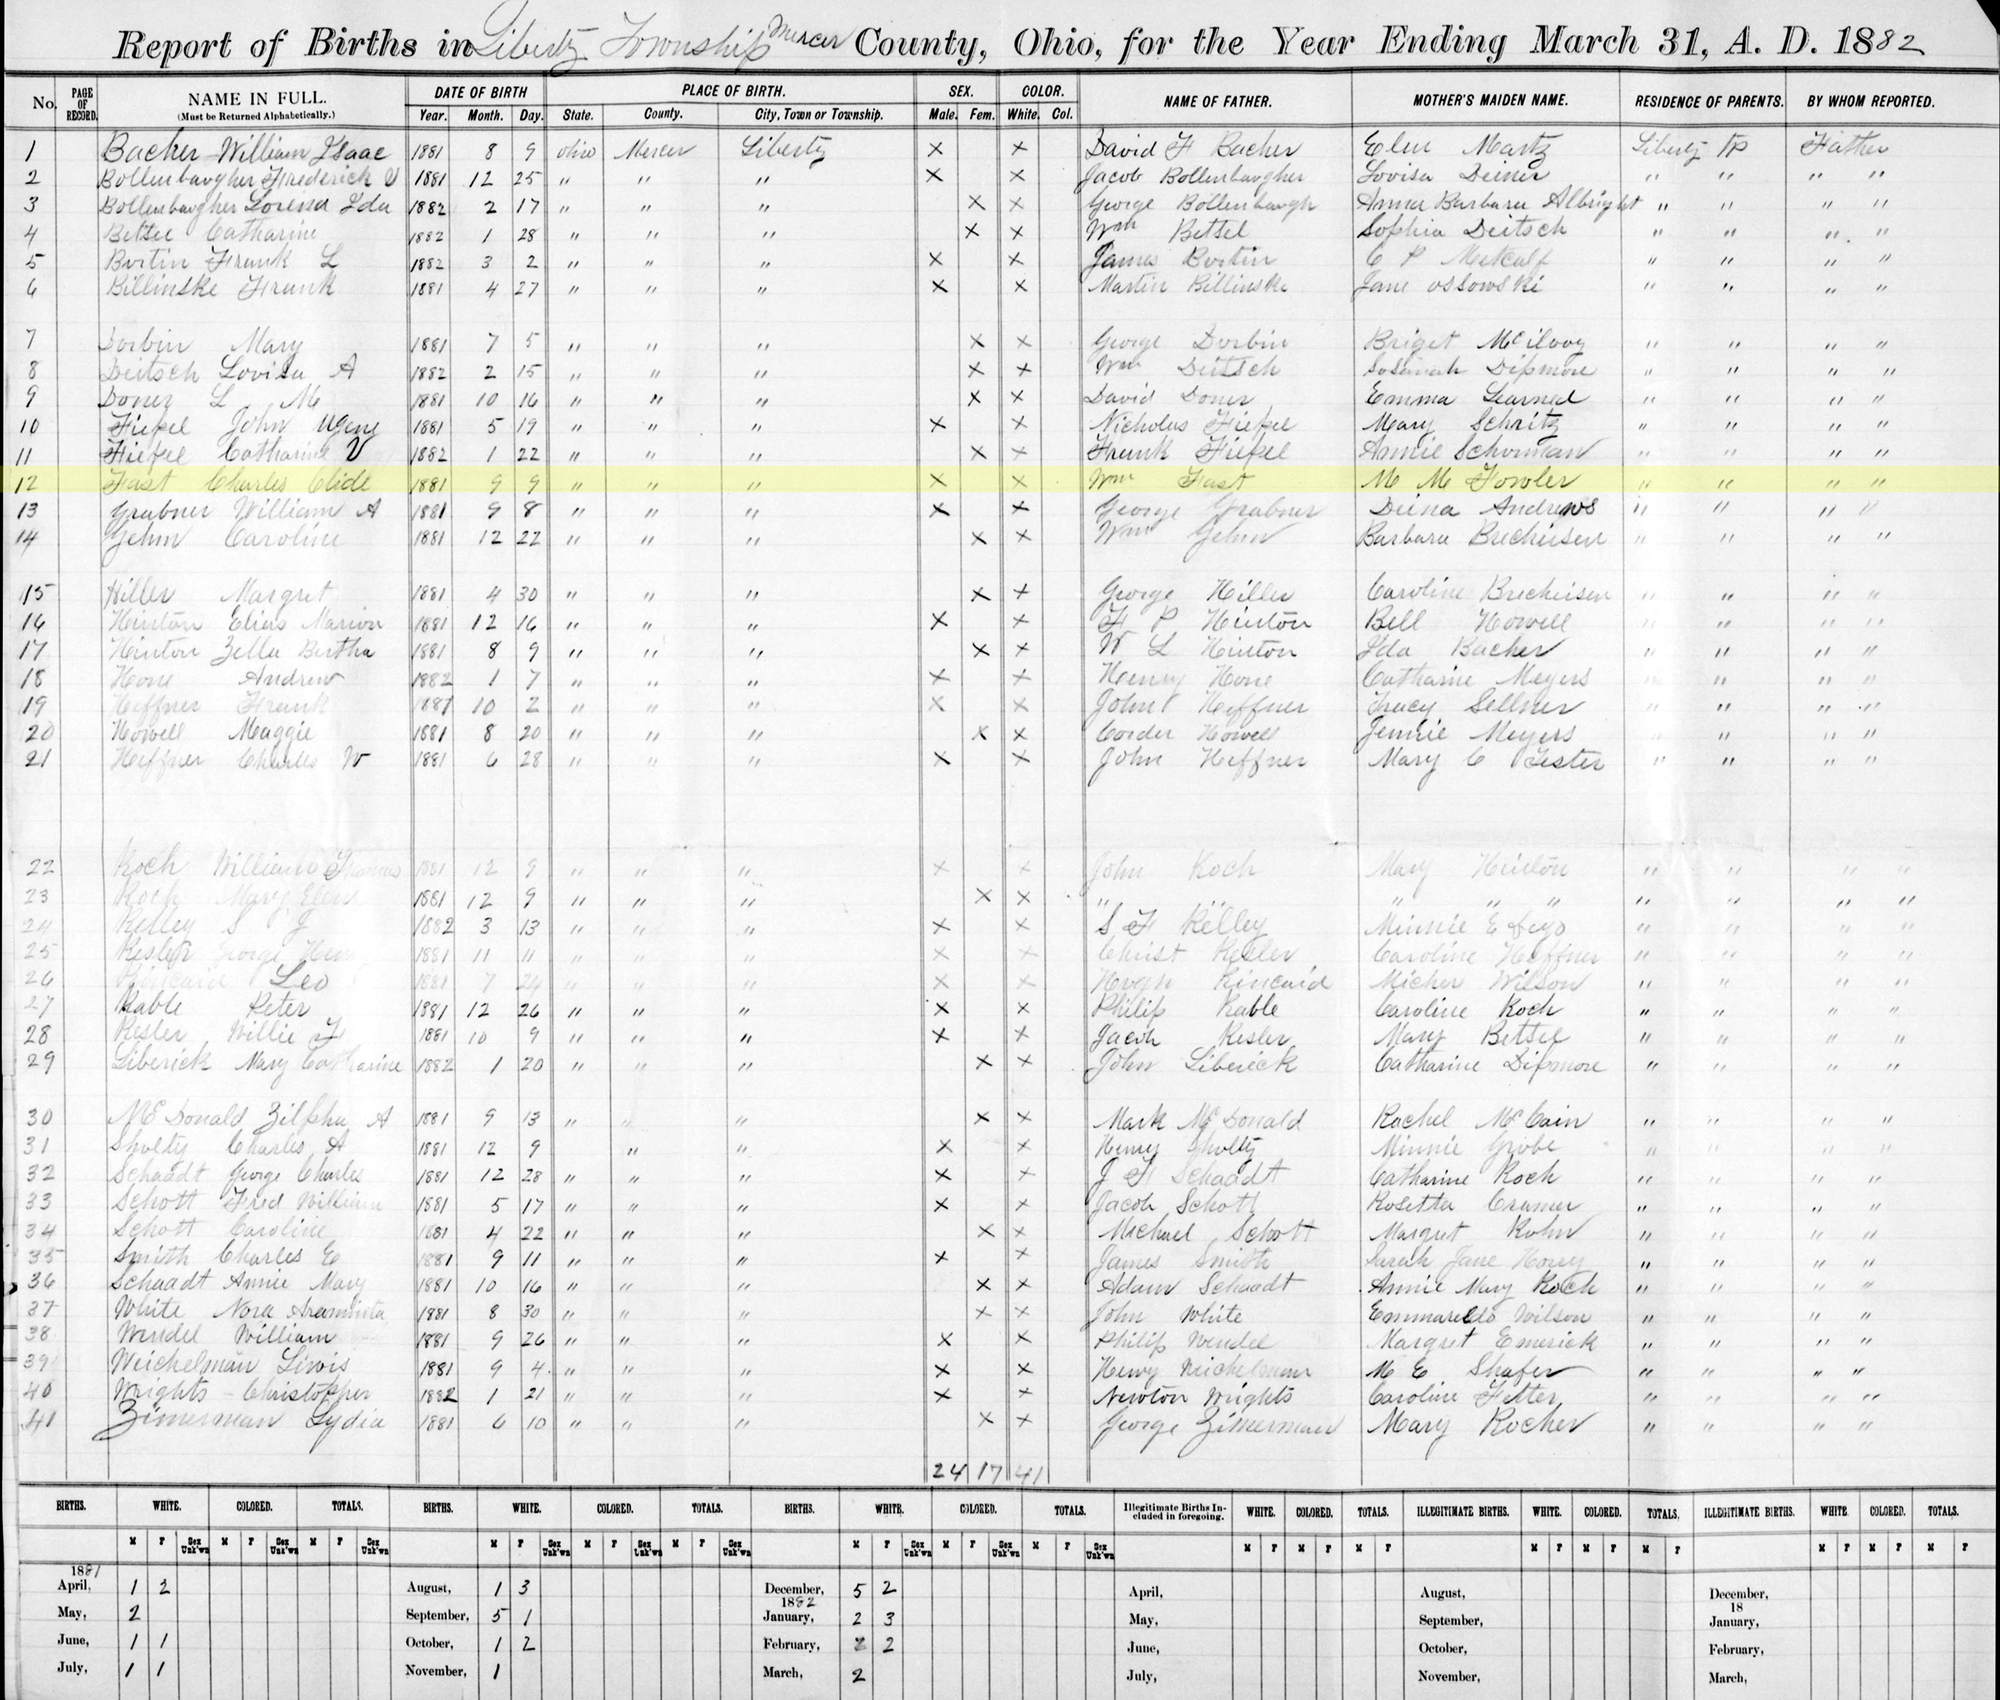 Report of Births in Liberty Township Mercer County, Ohio, for the Year Ending March 31, A. D. 1882
No. PAGE OF RECORD. NAME IN FULL. (Must be Returned Alphabetically.) DATE OF BIRTH Year. Month. Day. PLACE OF BIRTH. State. County. City, Town or Township. SEX. Male. Fem. COLOR. White. Col. NAME OF FATHER. MOTHER'S MAIDEN NAME. RESIDENCE OF PARENTS. BY WHOM REPORTED.
1 Bacher William Isaac 1881 8 9 Ohio Mercer Liberty × × David F Bacher Elen Martz Liberty Tp Father
2 Bollenbaugher Frederick V 1881 12 25 " " " × × Jacob Bollenbaugher Lovisa Deiner " " " "
3 Bollenbaugher Lorena Ida 1882 2 17 " " " × × George Bollenbaugh Anna Barbara Albright " " " "
4 Betsel Catharine 1882 1 28 " " " × × Wm Betsel Sophia Deitsch " " " "
5 Frank L 1882 3 2 " " " × × James C P Metcalf " " " "
6 Billinske Frank 1881 4 27 " " " × × Martin Billinske Jane Ossowski " " " "
7 Dorbin Mary 1881 7 5 " " " × × George Dorbin Briget McIlvoy " " " "
8 Deitsch Lovisa A 1882 2 15 " " " × × Wm Deitsch Susannah Dipmore " " " "
9 Doner L M 1881 10 16 " " " × × David Doner Emma Learned " " " "
10 John Ugene 1881 5 19 " " " × × Nicholus Mary " " " "
11 Catharine V 1882 1 22 " " " × × Frank Annie Schorman " " " "
12 Fast Charles Clide 1881 9 9 " " " × × Wm Fast M M Fowler " " " "
13 Grabner William A 1881 9 8 " " " × × George Grabner Diena Andrews " " " "
14 Gehm Caroline 1881 12 22 " " " × × Wm Gehm Barbara Brecheisen " " " "
15 Hiller Margret 1881 4 30 " " " × × George Hiller Caroline Brecheisen " " " "
16 Hinton Eliers Marion 1881 12 16 " " " × × F P Hinton Bell Howell " " " "
17 Hinton Zella Bertha 1881 8 9 " " " × × W L Hinton Ida Bacher " " " "
18 Hone Andrew 1882 1 7 " " " × × Henry Hone Catharine Meyers " " " "
19 Heffner Frank 1881 10 2 " " " × × John Heffner Tracy Sellner " " " "
20 Howell Maggie 1881 8 20 " " " × × Corder Howell Jennie Meyers " " " "
21 Heffner Charles W 1881 6 28 " " " × × John Heffner Mary C " " " "
22 Koch William Thomas 1881 12 9 " " " × × John Koch Mary Hinton " " " "
23 Koch Mary Elen 1881 12 9 " " " × × " " " " " " " " "
24 Kelley S J 1882 3 13 " " " × × S F Kelley Minnie E " " " "
25 Kesler George Hen 1881 11 11 " " " × × Christ Kesler Caroline Heffner " " " "
26 Kincaid Leo 1881 7 24 " " " × × Hugh Kincaid Wilson " " " "
27 Kable Peter 1881 12 26 " " " × × Philip Kable Caroline Koch " " " "
28 Kesler Willie F 1881 10 9 " " " × × Jacob Kesler Mary Betsel " " " "
29 Liberick Mary Catharine 1882 1 20 " " " × × John Liberick Catharine Dipmore " " " "
30 McDonald Zilpha A 1881 9 13 " " " × × Mark McDonald Rachel McCain " " " "
31 Sholty Charles A 1881 12 9 " " × × Henry Sholty Minnie Grobe " " " "
32 Schaadt George Charles 1881 12 28 " " " × × J F Schaadt Catharine Koch " " " "
33 Schott Fred William 1881 5 17 " " " × × Jacob Schott Rosetta Cramer " " " "
34 Schott Caroline 1881 4 22 " " " × × Michael Schott Margret Kuhn " " " "
35 Smith Charles E 1881 9 11 " " " × × James Smith Sarah Jane " " " "
36 Schaadt Annie Mary 1881 10 16 " " " × × Adam Schaadt Annie Mary Koch " " " "
37 White Nora Araminta 1881 8 30 " " " × × John White Wilson " " " "
38 Wendel William 1881 9 26 " " " × × Philip Wendel Margret Emerick " " " "
39 Weichelman Liwis 1881 9 4 " " " × × Henry Weichelman M E Shafer " " " "
40 Wrights Christopher 1882 1 21 " " " × × Newton Wrights Caroline Fetter " " " "
41 Zimerman Lydia 1881 6 10 " " " × × George Zimerman Mary Rocher " " " "
24 17 41
BIRTHS. WHITE. COLORED. TOTALS. BIRTHS. WHITE. COLORED. TOTALS. BIRTHS. WHITE. COLORED. TOTALS. Illegitimate Births Included in foregoing. WHITE. COLORED. TOTALS. ILLEGITIMATE BIRTHS. WHITE. COLORED. TOTALS. ILLEGITIMATE BIRTHS. WHITE. COLORED. TOTALS.
M F Sex Unk'wn M F Sex Unk'wn M F Sex Unk'wn M F Sex Unk'wn M F Sex Unk'wn M F Sex Unk'wn M F Sex Unk'wn M F Sex Unk'wn M F Sex Unk'wn M F M F M F M F M F M F M F M F M F
1881
April, 1 2 August, 1 3 December, 5 2 April, August, December,
1882 18
May, 2 September, 5 1 January, 2 3 May, September, January,
June, 1 1 October, 1 2 February, 2 June, October, February,
July, 1 1 November, 1 March, 2 July, November, March,